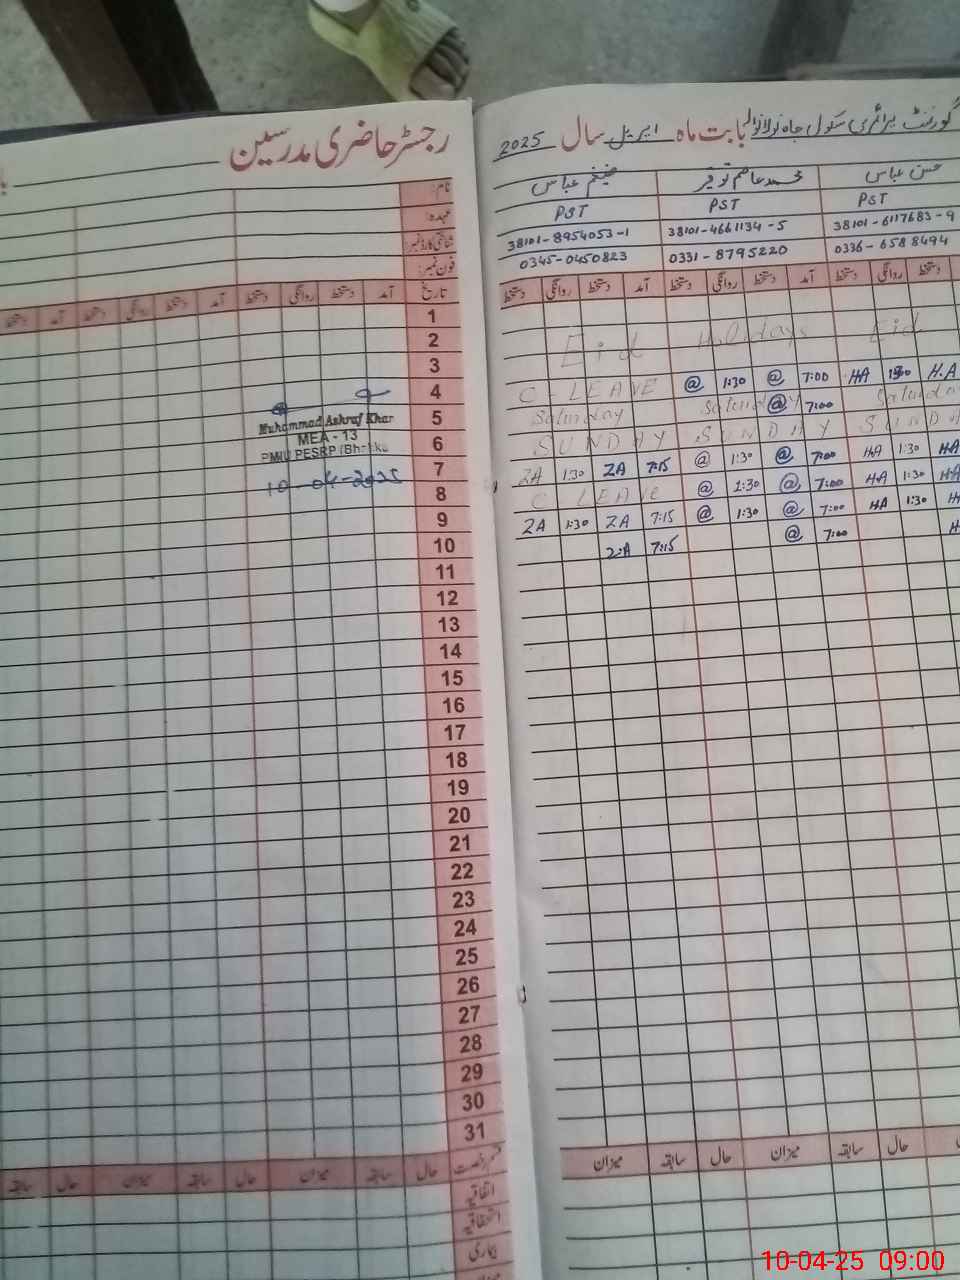 رجسٹر حاضری مدرسین
نام:
عہدہ:
شناختی کارڈ نمبر:
فون نمبر:
دستخط آمد دستخط روانگی دستخط آمد دستخط روانگی دستخط آمد تاریخ
1
2
3
4
5
6
7
8
9
10
11
12
13
14
15
16
17
18
19
20
21
22
23
24
25
26
27
28
29
30
31
Muhammad Ashraf Khan
MEA - 13
10-04-2025
سابقہ حال میزان سابقہ حال میزان سابقہ حال قسم رخصت
اتفاقیہ
استحقاقیہ
بیماری
میزان
گورنمنٹ پرائمری سکول بابت ماہ اپریل سال 2025
ضیغم عباس محمد عاصم توقیر حسن عباس
PST PST PST
38101-8954053-1 38101-4661134-5 38101-6117683-9
0345-0450823 0331-8795220 0336-6588494
دستخط روانگی دستخط آمد دستخط روانگی دستخط آمد دستخط روانگی دستخط
Eid Holidays Eid
C-LEAVE @ 1:30 @ 7:00 HA 1:30 H.A
Saturday Saturday @ 7:00 Saturday
SUNDAY SUNDAY SUNDA
ZA 1:30 ZA 7:15 @ 1:30 @ 7:00 HA 1:30 HA
C LEAVE @ 1:30 @ 7:00 HA 1:30 H
ZA 1:30 ZA 7:15 @ 1:30 @ 7:00 HA 1:30 H
Z.A 7:15 @ 7:00 H
میزان سابقہ حال میزان سابقہ حال
10-04-25 09:00